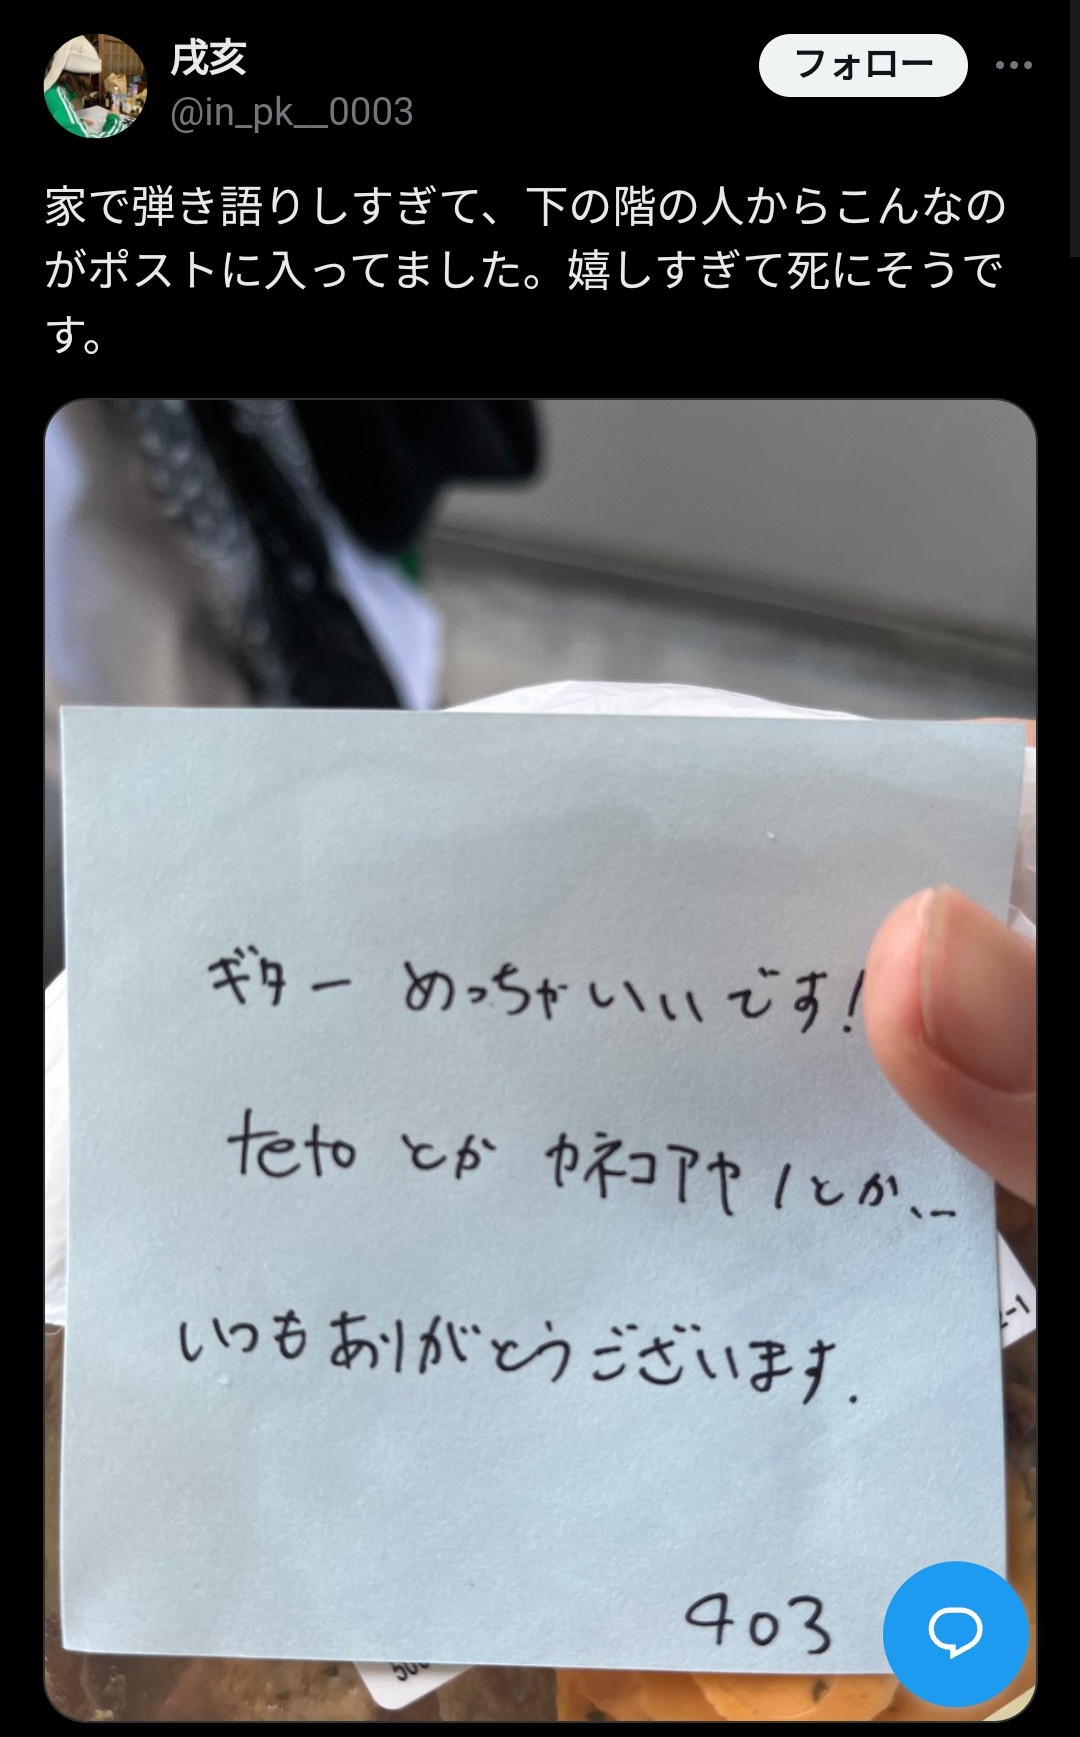 戌亥
フォロー
@in_pk__0003
家で弾き語りしすぎて、下の階の人からこんなの
がポストに入ってました。嬉しすぎて死にそうで
す。
ギター めっちゃいいです!
teto とか カネコアヤノとか、、
いつもありがとうございます.
403